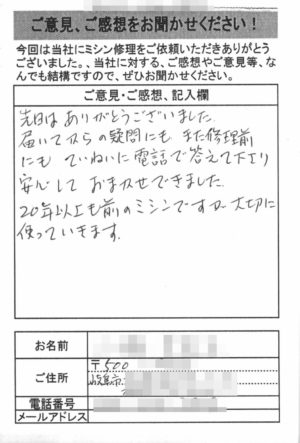 ご意見、ご感想をお聞かせください！
今回は当社にミシン修理をご依頼いただきありがとう
ございました。、当社に対する、ご感想やご意見等、な
んでも結構ですので、ぜひお聞かせください。
ご意見・ご感想、記入欄
先日はありがとうございました。
届いてからの疑問にも また修理前
にも ていねいに電話で答えて下さり
安心して おまかせできました。
20年以上も前のミシンですが 大切に
使っていきます。
お名前
ご住所
〒500
岐阜市
電話番号
メールアドレス